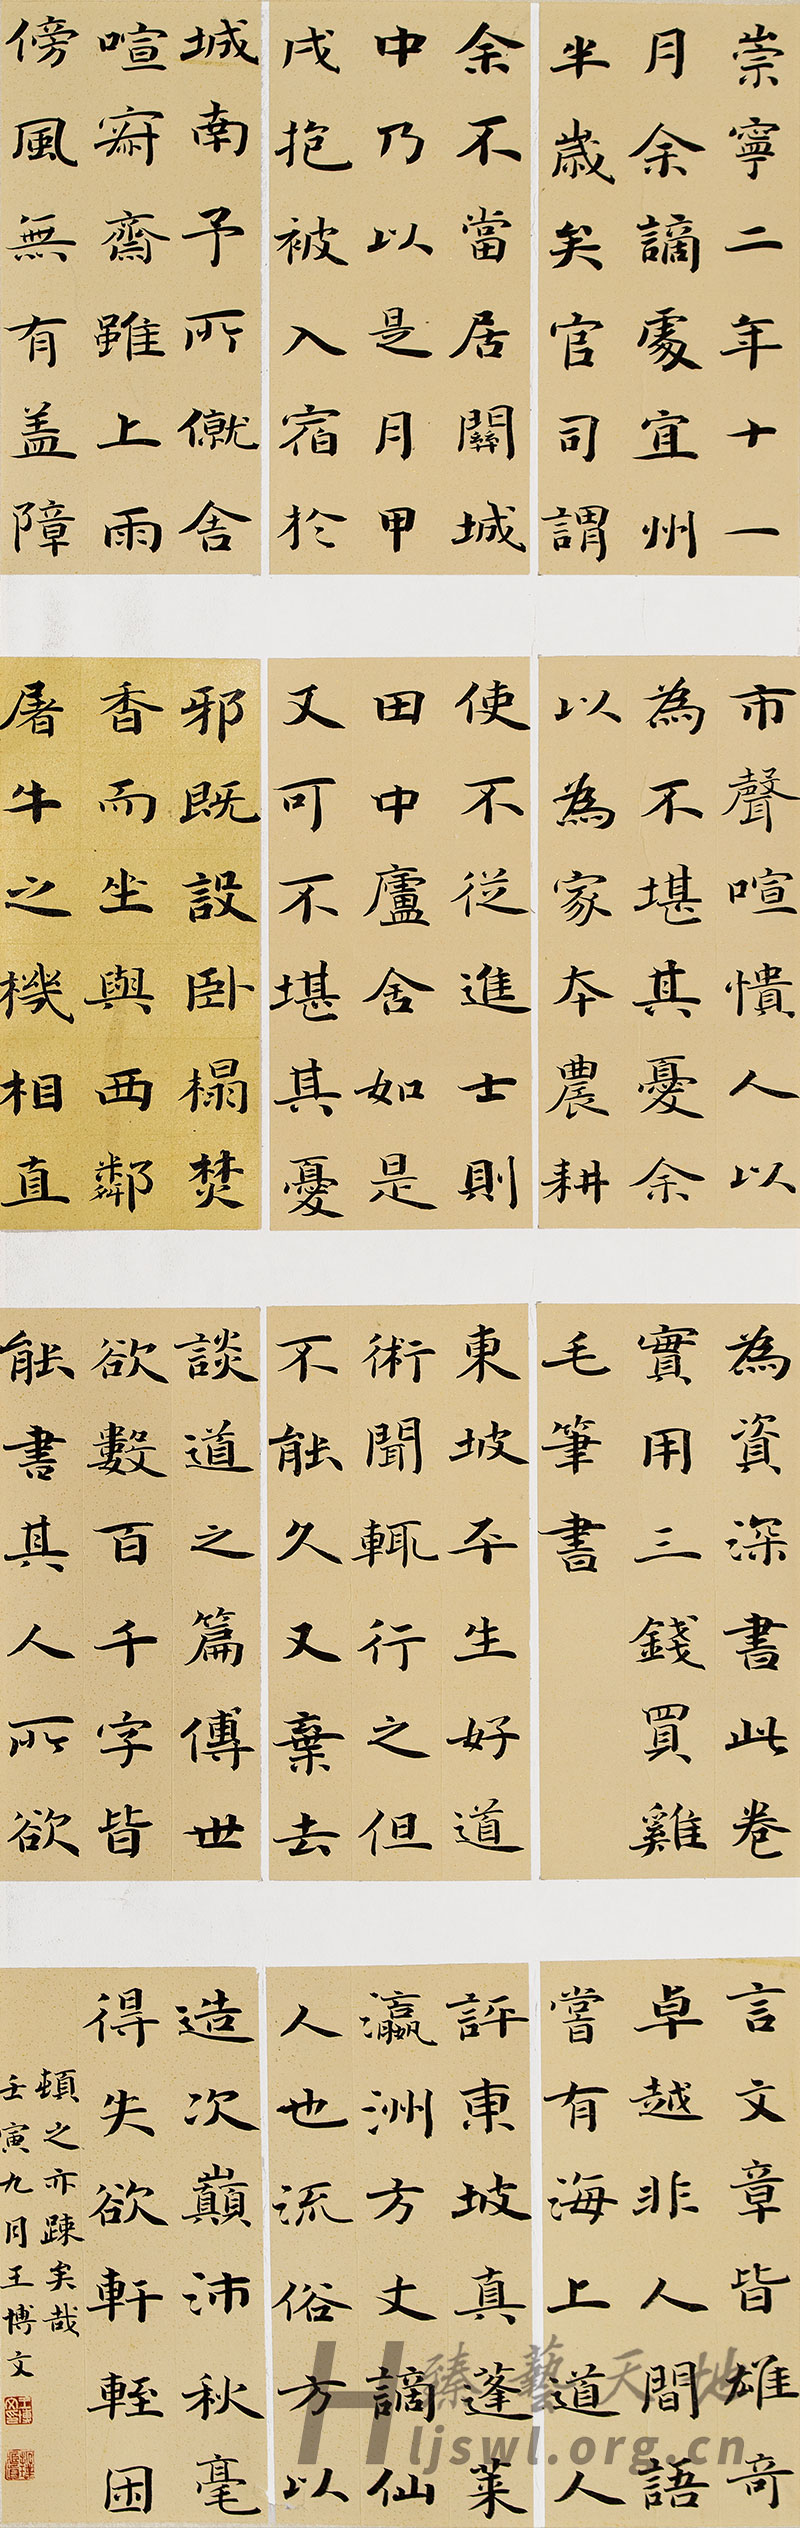 崇寧二年十一
月余謫處宜州
半歲矣官司謂
余不當居關城
中乃以是月甲
戌抱被入宿於
城南予所僦舍
喧寂齋雖上雨
傍風無有盖障
市聲喧憒人以
為不堪其憂余
以為家本農耕
使不從進士則
田中廬舍如是
又可不堪其憂
邪既設卧榻焚
香而坐與西鄰
屠牛之機相直
為資深書此卷
實用三錢買雞
毛筆書
東坡平生好道
術聞輒行之但
不能久又棄去
談道之篇傅世
欲數百千字皆
能書其人所欲
言文章皆雄奇
卓越非人間語
嘗有海上道人
評東坡真蓬萊
瀛洲方丈謫仙
人也流俗方以
造次巔沛秋毫
得失欲軒輊困
頓之亦踈矣哉
壬寅九月王博文
臻藝天地
hljswl.org.cn